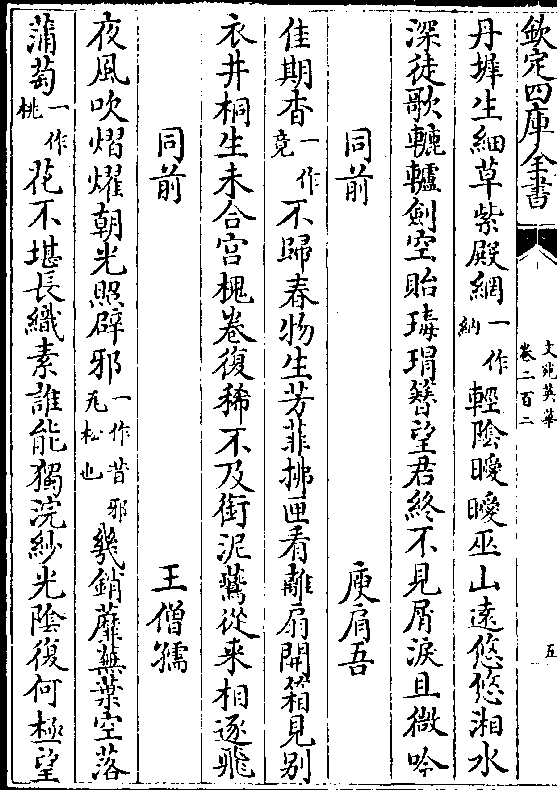 欽定四庫全書
文苑英華
卷二百二
五
丹墀生細草紫殿網一作納輕陰曖曖巫山遠悠悠湘水
深徒歌轆轤劍空貽瑇瑁簪望君終不見屑淚且微吟
同前 庾肩吾
佳期杳一作竟不歸春物生芳菲拂匣看離扇開箱見别
衣井桐生未合宫槐卷復稀不及銜泥鷰從来相逐飛
同前 王僧孺
夜風吹熠燿朝光照辟邪一作昔邪凡松也幾銷蘼蕪葉空落
蒲萄一作桃花不堪長織素誰能獨浣紗光陰復何極望